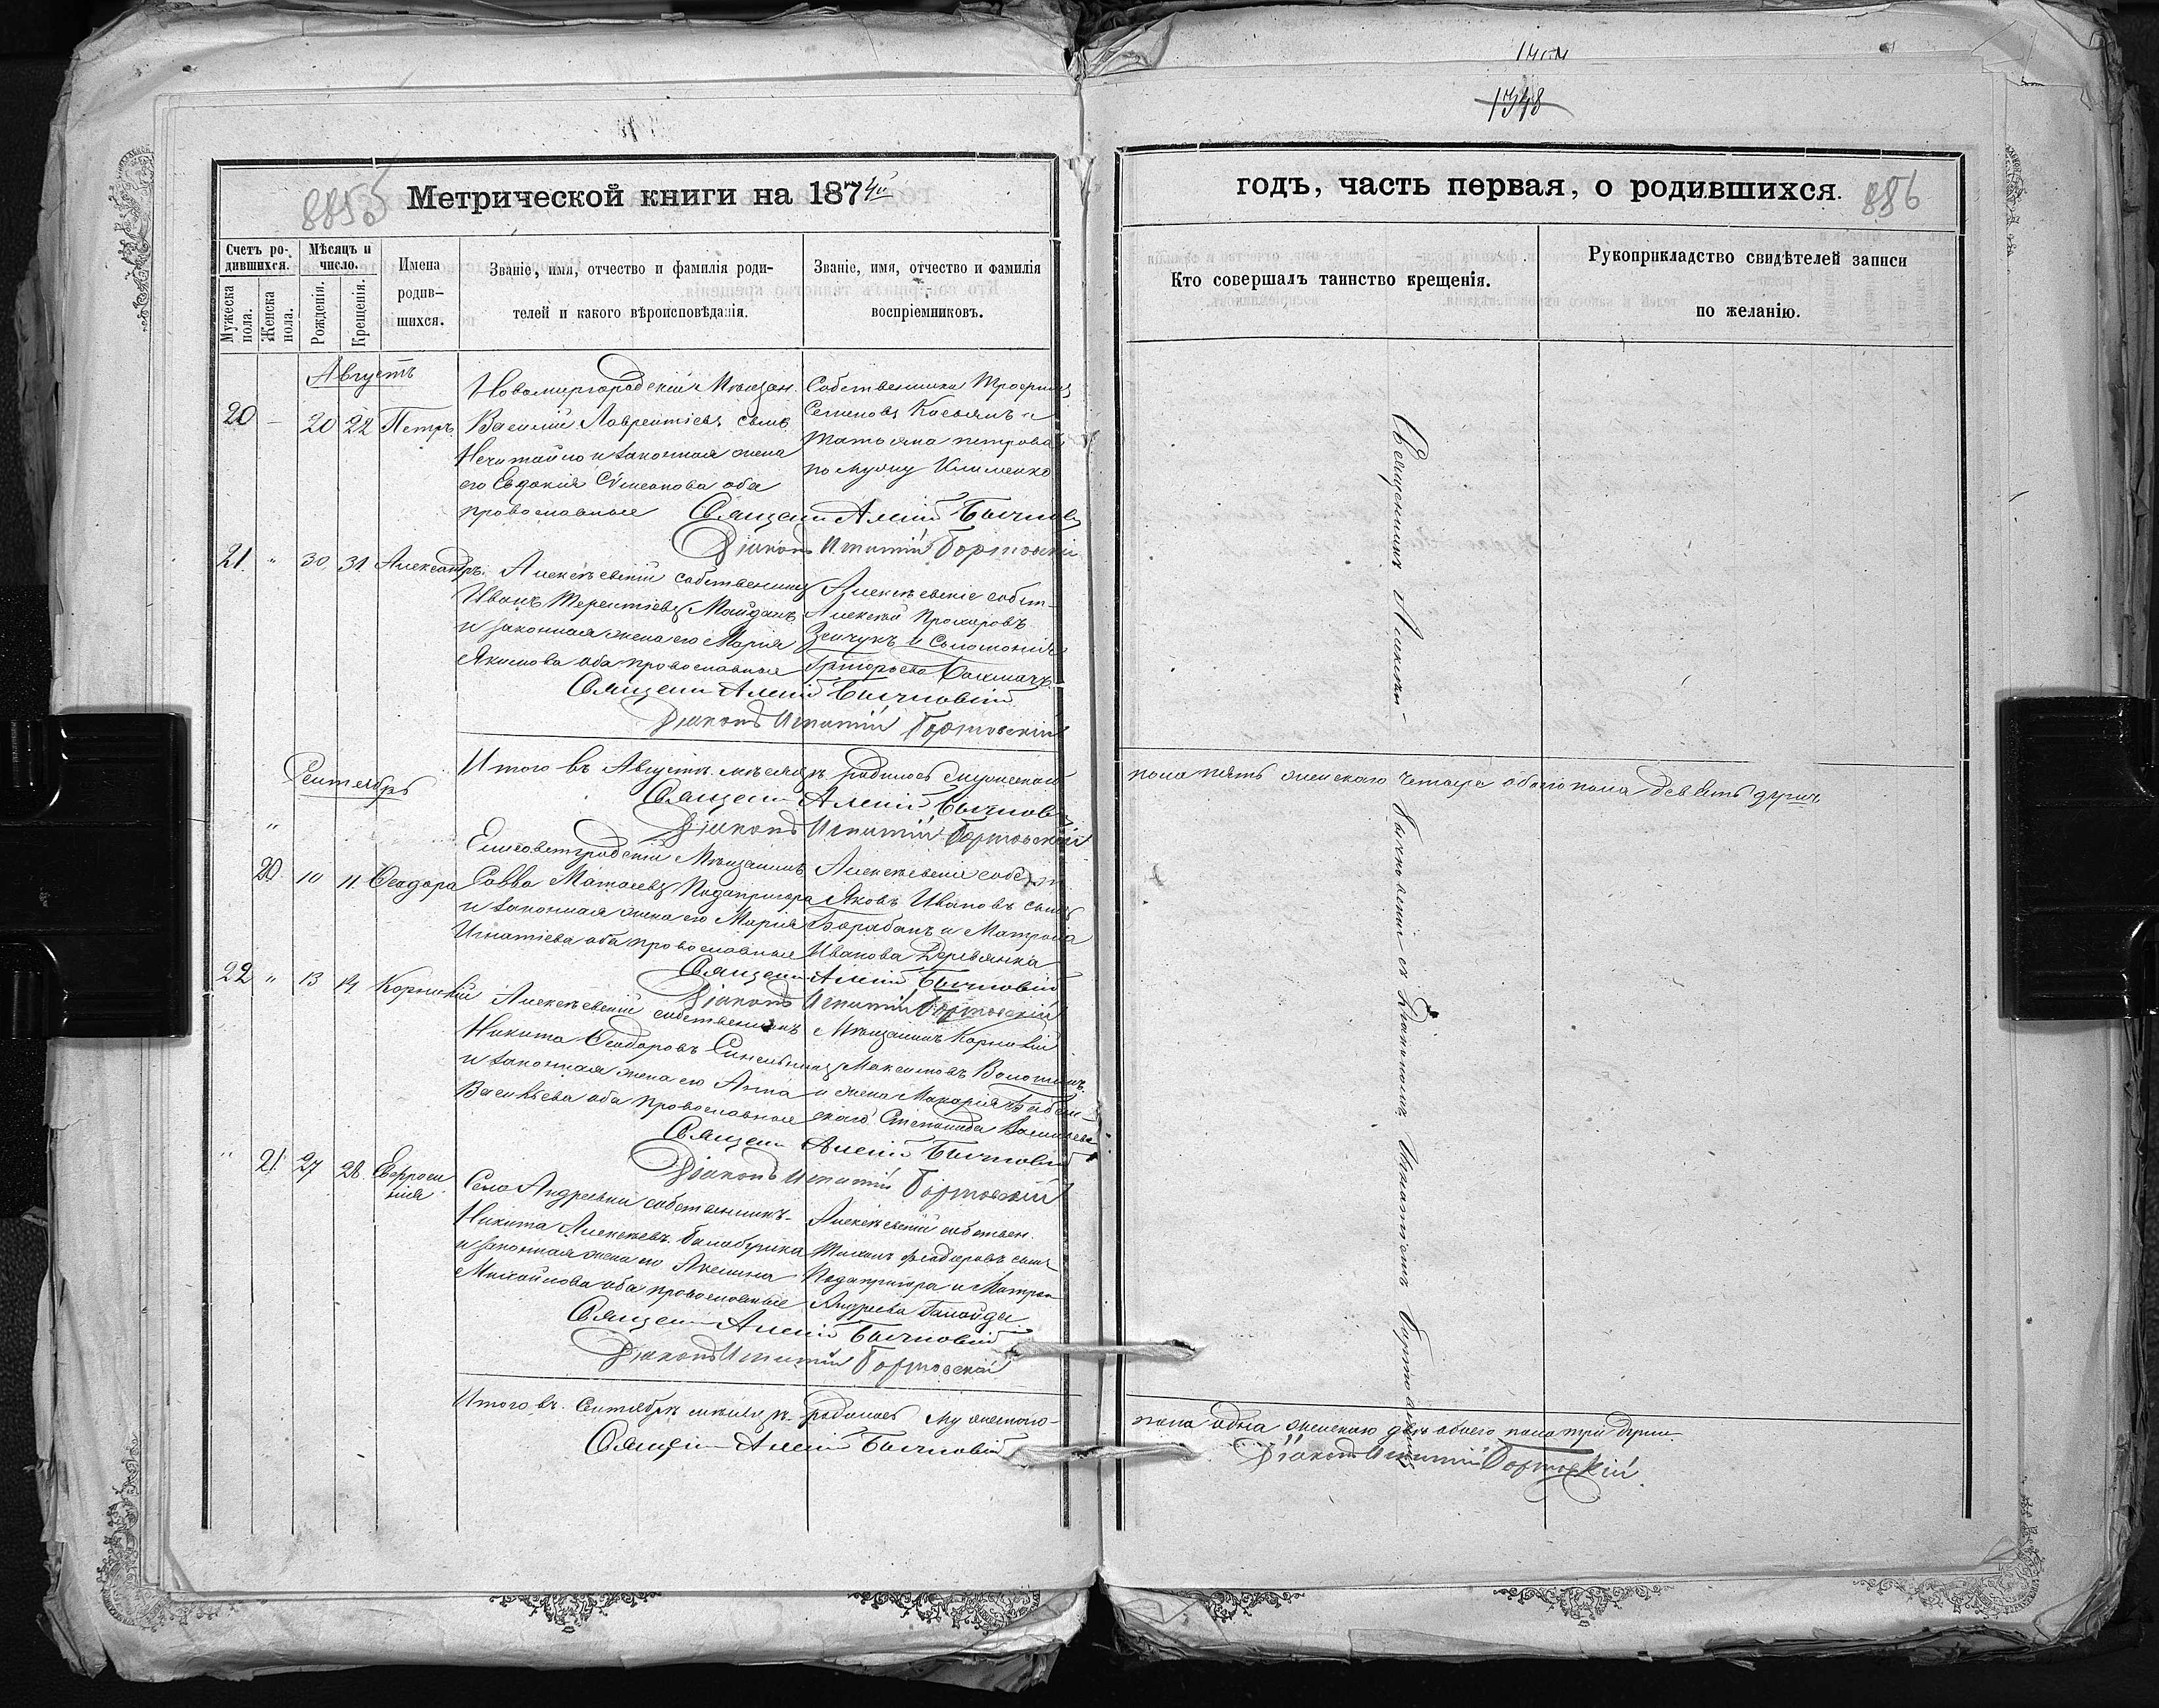 1348
885
Метрической книги на 1874й
годъ, часть первая, о родившихся.
886
Счетъ ро-
дившихся.
Мѣсяцъ и
число.
Имена
родив-
шихся.
Званіе, имя, отчество и фамилія роди-
телей и какого вѣроисповѣданія.
Званіе, имя, отчество и фамилія
воспріемниковъ.
Мужеска
пола.
Женска
пола.
Рожденія.
Крещенія.
Кто совершалъ таинство крещенія.
Рукоприкладство свидѣтелей записи
по желанію.
Августъ
20 — 20 22 Петръ
Новомиргородскій Мѣщан.
Василій Лаврентіевъ сынъ
Нечитайло и законная жена
его Евдокія Симеонова оба
православные
Собственники Трофимъ
Семеновъ Касьянъ и
Татьяна Петрова
по мужу Клименко
Священ Алексій
Діаконъ Игнатій
21 " 30 31 Александръ
Алексѣевскій собственникъ
Иванъ Терентіевъ Майданъ
и законная жена его Марія
Якимова оба православные
Алексѣевскіе собст-
Алексѣй Прохоровъ
и Соломонія
Григорьева
Священ Алексій
Діаконъ Игнатій
Итого въ Августѣ мѣсяцѣ родилось мужескаго
пола пять женскаго четыре обоего пола девять душъ
Священ Алексій
Діаконъ Игнатій
Сентябрь
" 20 10 11 Феодора
Елисаветградскій Мѣщанинъ
Савва Матѳеевъ Подопригора
и законная жена его Марія
Игнатіева оба православные
Алексѣевскіе собст
Яковъ Ивановъ сынъ
Барабанъ и Матрона
Иванова Деревянка
Священ Алексій
Діаконъ Игнатій
22 " 13 14 Корнилій
Алексѣевскій собственникъ
Никита Феодоровъ
и законная жена его Анна
Васильева оба православные
Мѣщанинъ Корнилій
Максимовъ Волошинъ
и жена Макарія
Степанида Васильева
Священ Алексій
Діаконъ Игнатій
" 21 27 28 Евфроси
нія
Села Андреевки собственникъ
Никита Алексѣевъ Балабушка
и законная жена его Акелина
Михайлова оба православные
Алексѣевскій собствен.
Феодоровъ сынъ
Подопригора и Матрон
Андреева
Священ Алексій
Діаконъ Игнатій
Итого въ Сентябрѣ мѣсяцѣ родилось мужескаго
пола одна женскаго двѣ обоего пола три души.
Священ Алексій
Діаконъ Игнатій
Священникъ Алексѣй съ Діакономъ Игнатіемъ